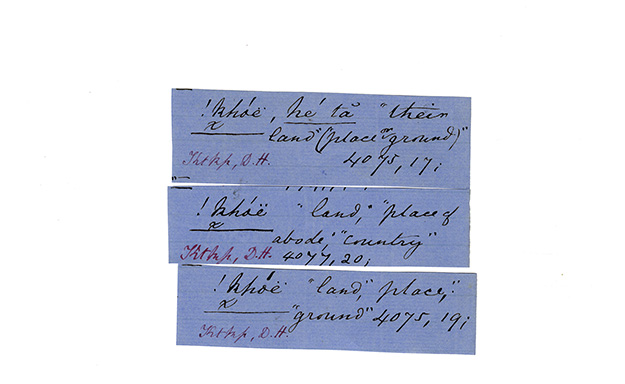 !khóë, hé tă "their
land" (place or ground)"
Kkkp, D.H. 4075, 17;
!khóë "land," "place of
abode," "country"
Kkkp, D.H. 4077, 20;
!khóë "land," place,"
"ground" 4075, 19;
D.H.